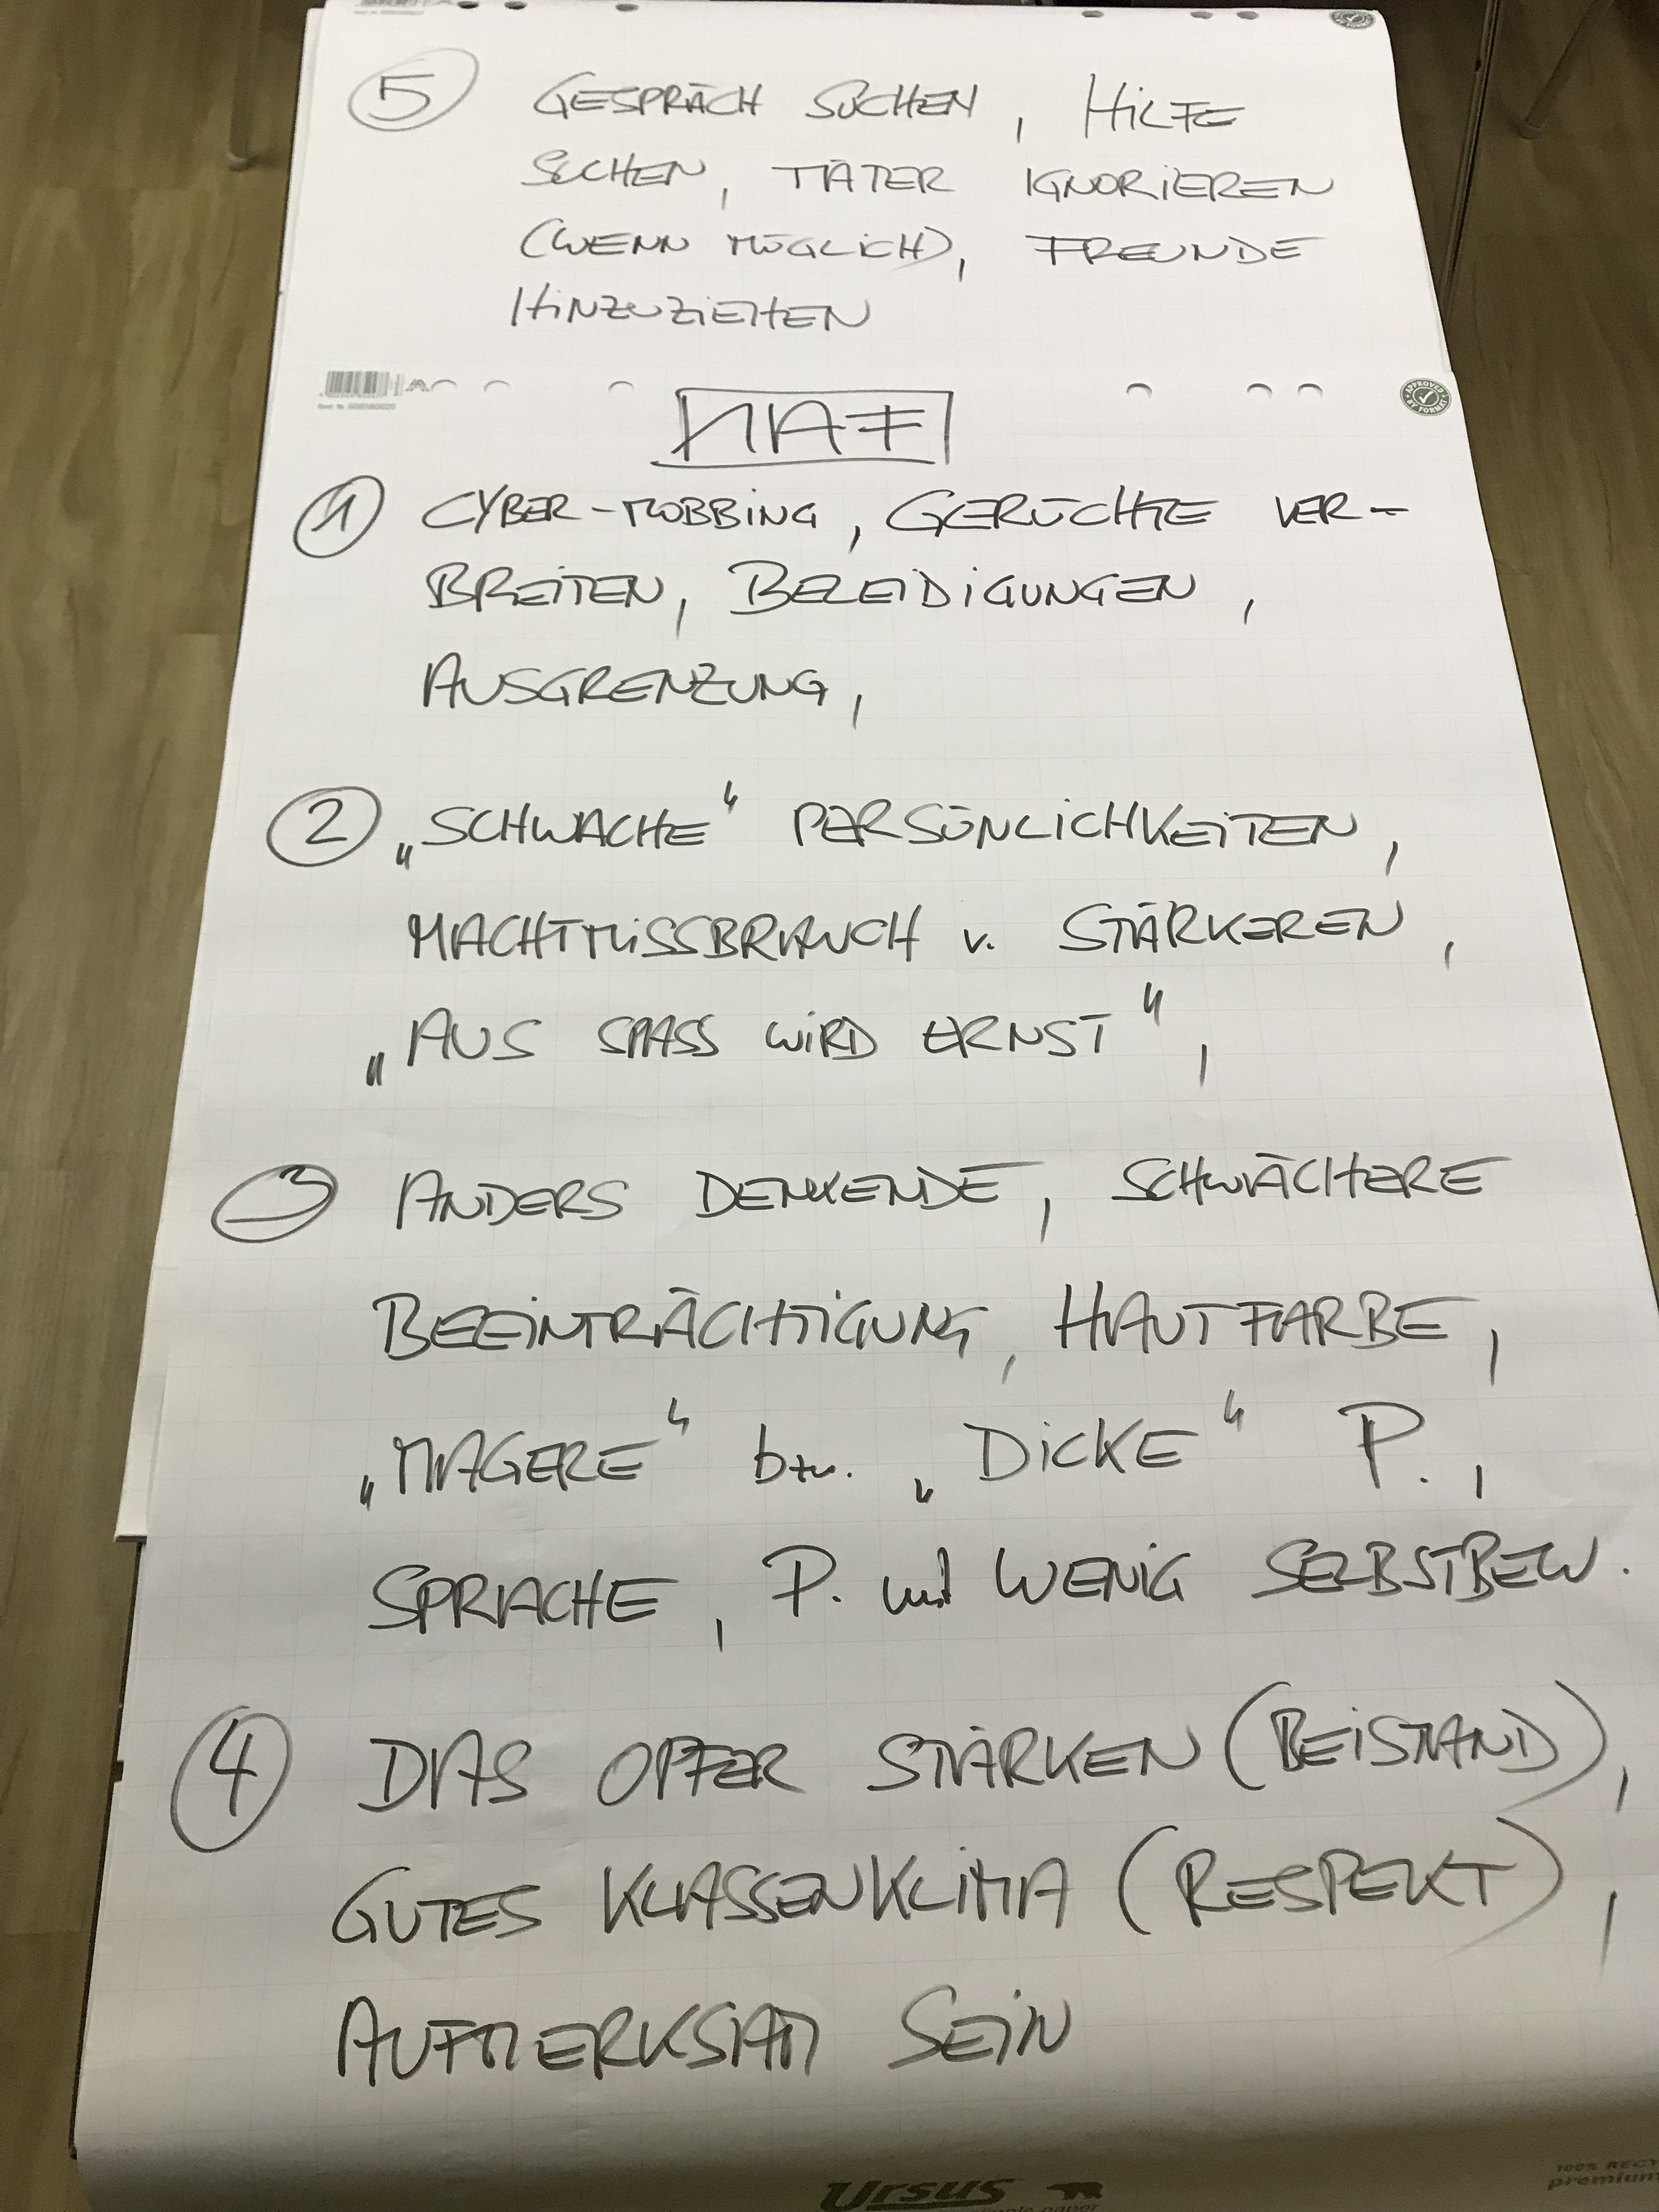 5 GESPRÄCH SUCHEN, HILFE
SUCHEN, TÄTER IGNORIEREN
(WENN MÖGLICH), FREUNDE
HINZUZIEHEN
APPROVED BY FORMAT
1 CYBER-MOBBING, GERÜCHTE VER-
BREITEN, BELEIDIGUNGEN,
AUSGRENZUNG,
2 „SCHWACHE“ PERSÖNLICHKEITEN,
MACHTMISSBRAUCH v. STÄRKEREN,
„AUS SPASS WIRD ERNST“,
3 ANDERS DENKENDE, SCHWÄCHERE
BEEINTRÄCHTIGUNG, HAUTFARBE,
„MAGERE“ bzw. „DICKE“ P.,
SPRACHE, P. mit WENIG SELBSTBEW.
4 DAS OPFER STÄRKEN (BEISTAND),
GUTES KLASSENKLIMA (RESPEKT),
AUFMERKSAM SEIN
Ursus
100% RECY
premium